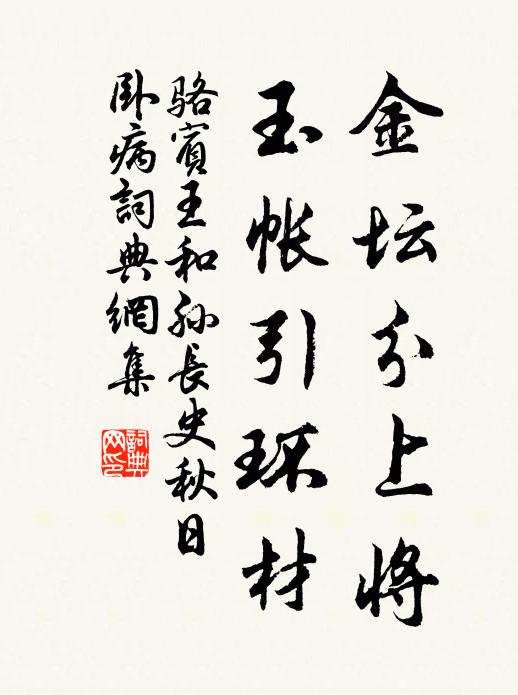 金坛分上将
玉帐引瓌材
骆賓王和孙長史秋日
卧病詞典網集
詞典网印